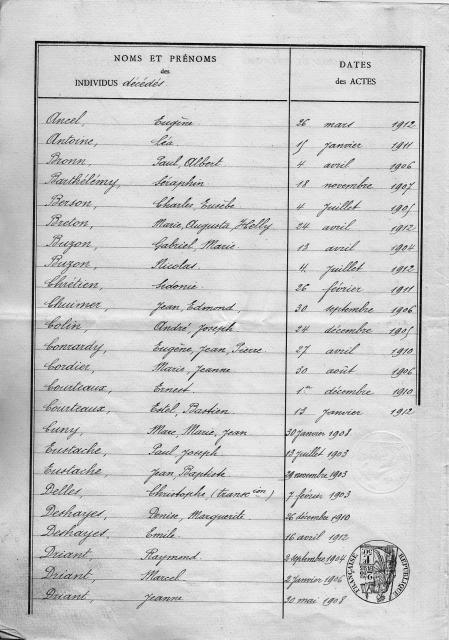 NOMS ET PRÉNOMS DATES
des des ACTES
INDIVIDUS décédés
Ancel, Eugène 26 mars 1912
Antoine, Léa 15 janvier 1911
Bronn, Paul, Albert 4 avril 1906
Barthélémy, Séraphin 18 novembre 1907
Berson, Charles, Eusèbe 4 juillet 1905
Breton, Marie, Augusta, Helly 24 avril 1912
Buzon, Gabriel, Marie 13 avril 1904
Buzon, Nicolas 11 juillet 1912
Chrétien, Sidonie 26 février 1911
Chuimer, Jean, Edmond, 30 septembre 1906
Colin, André, Joseph 24 décembre 1905
Conrardy, Eugène, Jean, Pierre 27 avril 1910
Cordier, Marie, Jeanne 30 août 1906
Courteaux, Ernest 1er décembre 1910
Courteaux, Estel, Bastien 13 janvier 1912
Cuny, Marc, Marie, Jean 30 janvier 1908
Eustache, Paul Joseph 13 juillet 1903
Eustache, Jean, Baptiste 29 novembre 1903
Delles, Christophe, (transcion) 7 février 1903
Deshayes, Denise, Marguerite 26 décembre 1910
Deshayes, Emile 16 avril 1912
Driant, Raymond 2 septembre 1904
Driant, Marcel 2 janvier 1906
Driant, Jeanne 30 mai 1908
RÉPUBLIQUE FRANÇAISE